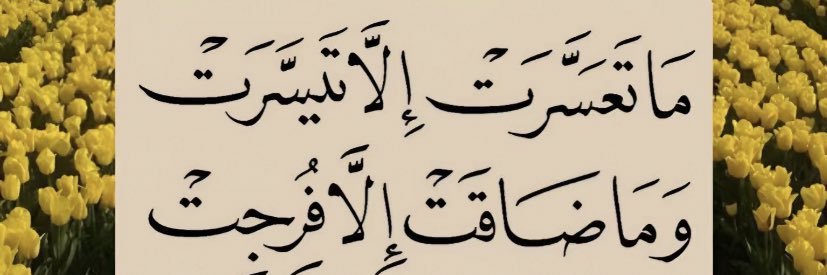 مَا تَعَسَّرَتْ إِلَّا تَيَسَّرَتْ
وَمَا ضَاقَتْ إِلَّا فُرِجتْ